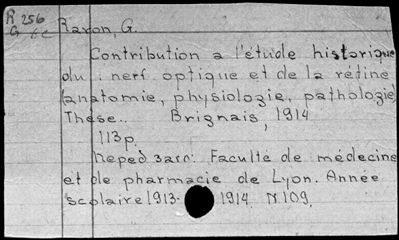 R 256 Raron, G.
G
Contribution a l'étude historique
du nerf optique et de la rétine
(anatomie, physiologie, pathologie)
Thèse.. Brignais, 1914
113p.
Перед загл: Faculté de médecine
et de pharmacie de Lyon. Année
scolaire 1913-1914 N 109.